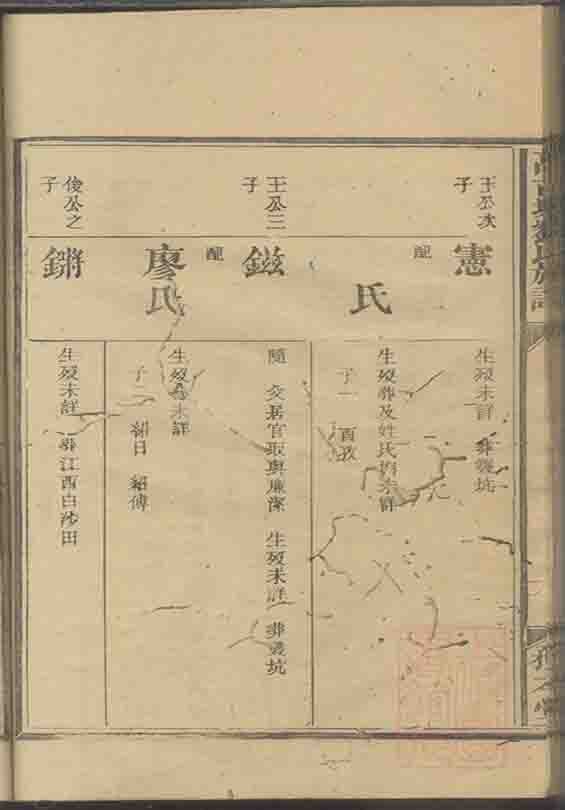 王公次子
憲
生歿未詳 葬襲坑
配
氏
生歿葬及姓氏俱未詳
子一 酉孜
王公三子
鎡
隨 父居官取與廉潔 生歿未詳 葬襲坑
配
廖氏
生歿葬未詳
子二 紹日 紹傳
俊公之子
鏘
生歿未詳 葬江西白沙田